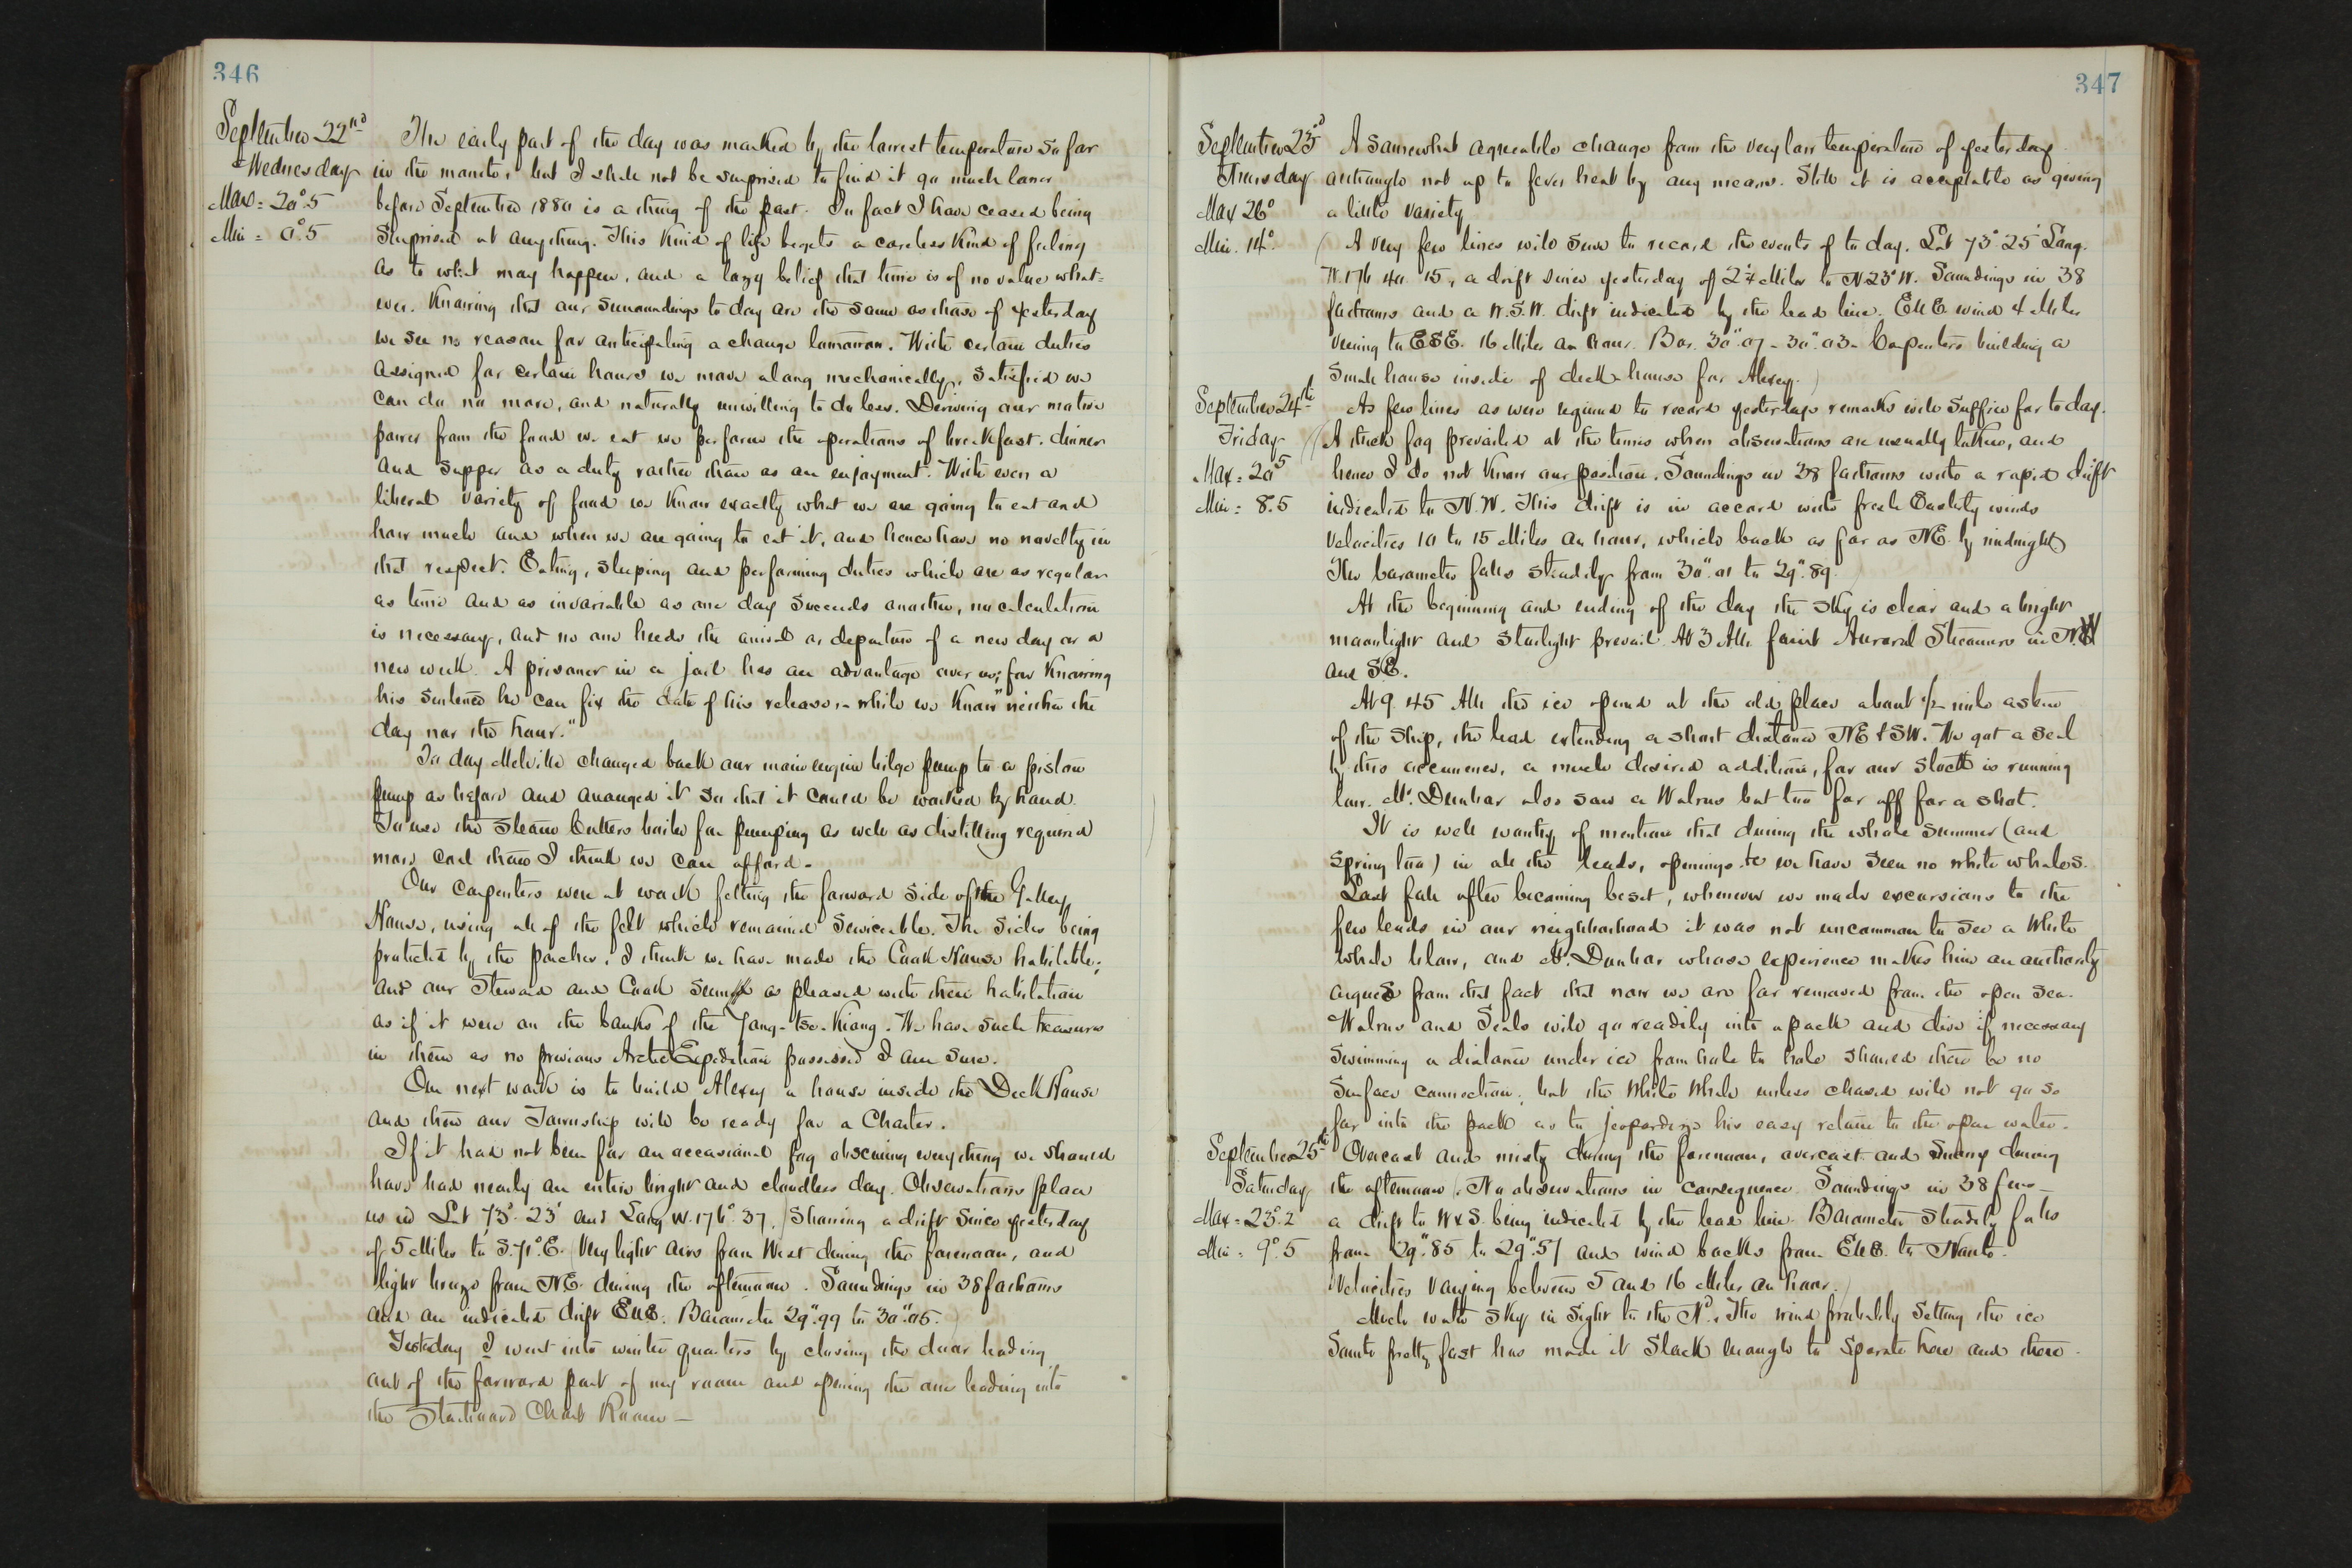 346
September 22nd
Wednesday
Max = 20°.5
Min = 0°.5
The early part of the day was marked by the lowest temperature so far
in the month, but I shall not be surprised to find it go much lower
before September 1880 is a thing of the past. In fact I have ceased being
surprised at anything. This kind of life begets a careless kind of feeling
as to what may happen, and a lazy belief that time is of no value what=
ever. Knowing that our surroundings to day are the same as those of yesterday
we see no reason for anticipating a change tomorrow. With certain duties
assigned for certain hours we move along mechanically, satisfied we
can do no more, and naturally unwilling to do less. Deriving our motive
power from the food we eat we perform the operations of breakfast, dinner
and supper as a duty rather than as an enjoyment. With even a
liberal variety of food we know exactly what we are going to eat and
how much and when we are going to eat it, and hence have no novelty in
that respect. Eating, sleeping and performing duties which are as regular
as time and as invariable as one day succeeds another, no calculation
is necessary, and no one heeds the arrival or departure of a new day or a
new week. A prisoner in a jail has an advantage over us; for knowing
his sentence he can fix the date of his release, while we know "neither the
day nor the hour."
To day Melville changed back our main engine bilge pump to a piston
pump as before and arranged it so that it could be worked by hand.
To use the steam Cutters boiler for pumping as well as distilling required
more coal than I think we can afford.
Our carpenters were at work felting the forward side of the Galley
House, using all of the felt which remained serviceable. The sides being
protected by the porches, I think we have made the Cook House habitable;
and our Steward and Cook seem as pleased with their habitation
as if it were on the banks of the Yang-tse-Kiang. We have such treasures
in them as no previous Arctic Expedition possessed I am sure.
Our next work is to build Alexey a house inside the Deck House
and then our Township will be ready for a Charter.
If it had not been for an occasional fog obscuring everything we should
have had nearly an entire bright and cloudless day. Observations place
us in Lat 73°. 23' and Long W. 176°. 37, (showing a drift since yesterday
of 5 Miles to S.71°.E. Very light airs from West during the forenoon, and
light breeze from NE. during the afternoon. Soundings in 38 fathoms
and an indicated drift ENE. Barometer 29".99 to 30".05.)
Yesterday I went into winter quarters by closing the door leading
out of the forward part of my room and opening the one leading into
the Starboard Chart Room —
347
September 23d
Thursday
Max 26°
Min. 14°.
A somewhat agreeable change from the very low temperature of yesterday
although not up to fever heat by any means. Still it is acceptable as giving
a little variety
(A very few lines will serve to record the events of to day. Lat 73°.25' Long.
W. 176 40 15, a drift since yesterday of 2¼ Miles to N 23° W. Soundings in 38
fathoms and a W.S.W. drift indicated by the lead line. ENE wind 4 Miles
veering to ESE. 16 Miles an hour. Bar. 30".07 - 30".03 - Carpenters building a
small house inside of deck-house for Alexey.)
September 24th
Friday
Max = 20 5
Min = 8.5
As few lines as were required to record yesterdays remarks will suffice for to day.
(A thick fog prevailed at the times when observations are usually taken, and
hence I do not know our position. Soundings in 38 fathoms with a rapid drift
indicated to N.W. This drift is in accord with fresh Easterly winds
velocities 10 to 15 Miles an hour, which back as far as NE. by midnight
The barometer falls steadily from 30".01 to 29".89.)
At the beginning and ending of the day the sky is clear and a bright
moonlight and starlight prevail. At 3 AM faint Auroral Streamers in N.W
and SE.
At 9.45 AM the ice opened at the old place about ½ mile astern
of the Ship, the lead extending a short distance NE & SW. We got a seal
by this occurrence, a much desired addition, for our stock is running
low. Mr. Dunbar also saw a Walrus but too far off for a shot.
It is well worthy of mention that during the whole summer (and
spring too) in all the leads, openings &c we have seen no white whales.
Last fall after becoming beset, whenever we made excursions to the
few leads in our neighborhood it was not uncommon to see a White
whale blow, and Mr. Dunbar whose experience makes him an authority
argues from that fact that now we are far removed from the open sea.
Walrus and Seals will go readily into a pack and dive if necessary
swimming a distance under ice from hole to hole should there be no
surface connection; but the White Whale unless chased will not go so
far into the pack as to jeopardize his easy return to the open water.
September 25th
Saturday
Max = 23°.2
Min = 9°.5
Overcast and misty during the forenoon, overcast and snowy during
the afternoon (No observations in consequence. Soundings in 38 fms —
a drift to W & S. being indicated by the lead line. Barometer steadily falls
from 29".85 to 29".57 and wind backs from ENE. to North.
Velocities varying between 5 and 16 Miles an hour.)
Much water sky in sight to the Nd. The wind probably setting the ice
South pretty fast has made it slack enough to separate here and there.